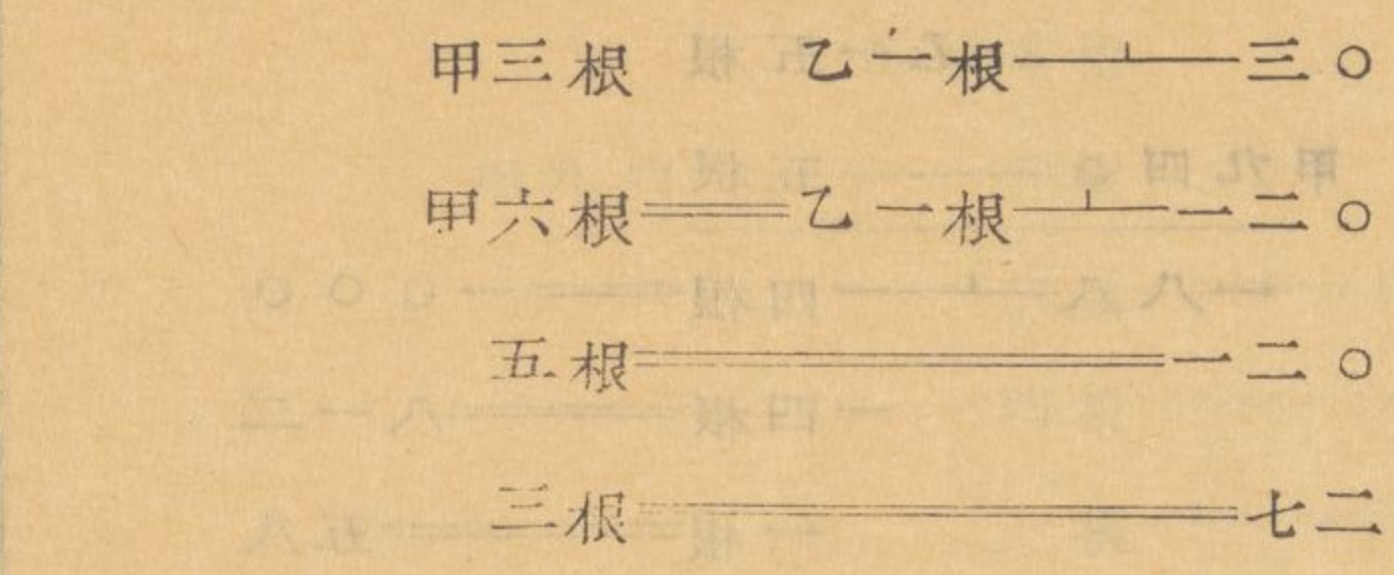 甲三根 乙一根⊥三〇
甲六根=乙一根⊥一二〇
五根=一二〇
三根=七二